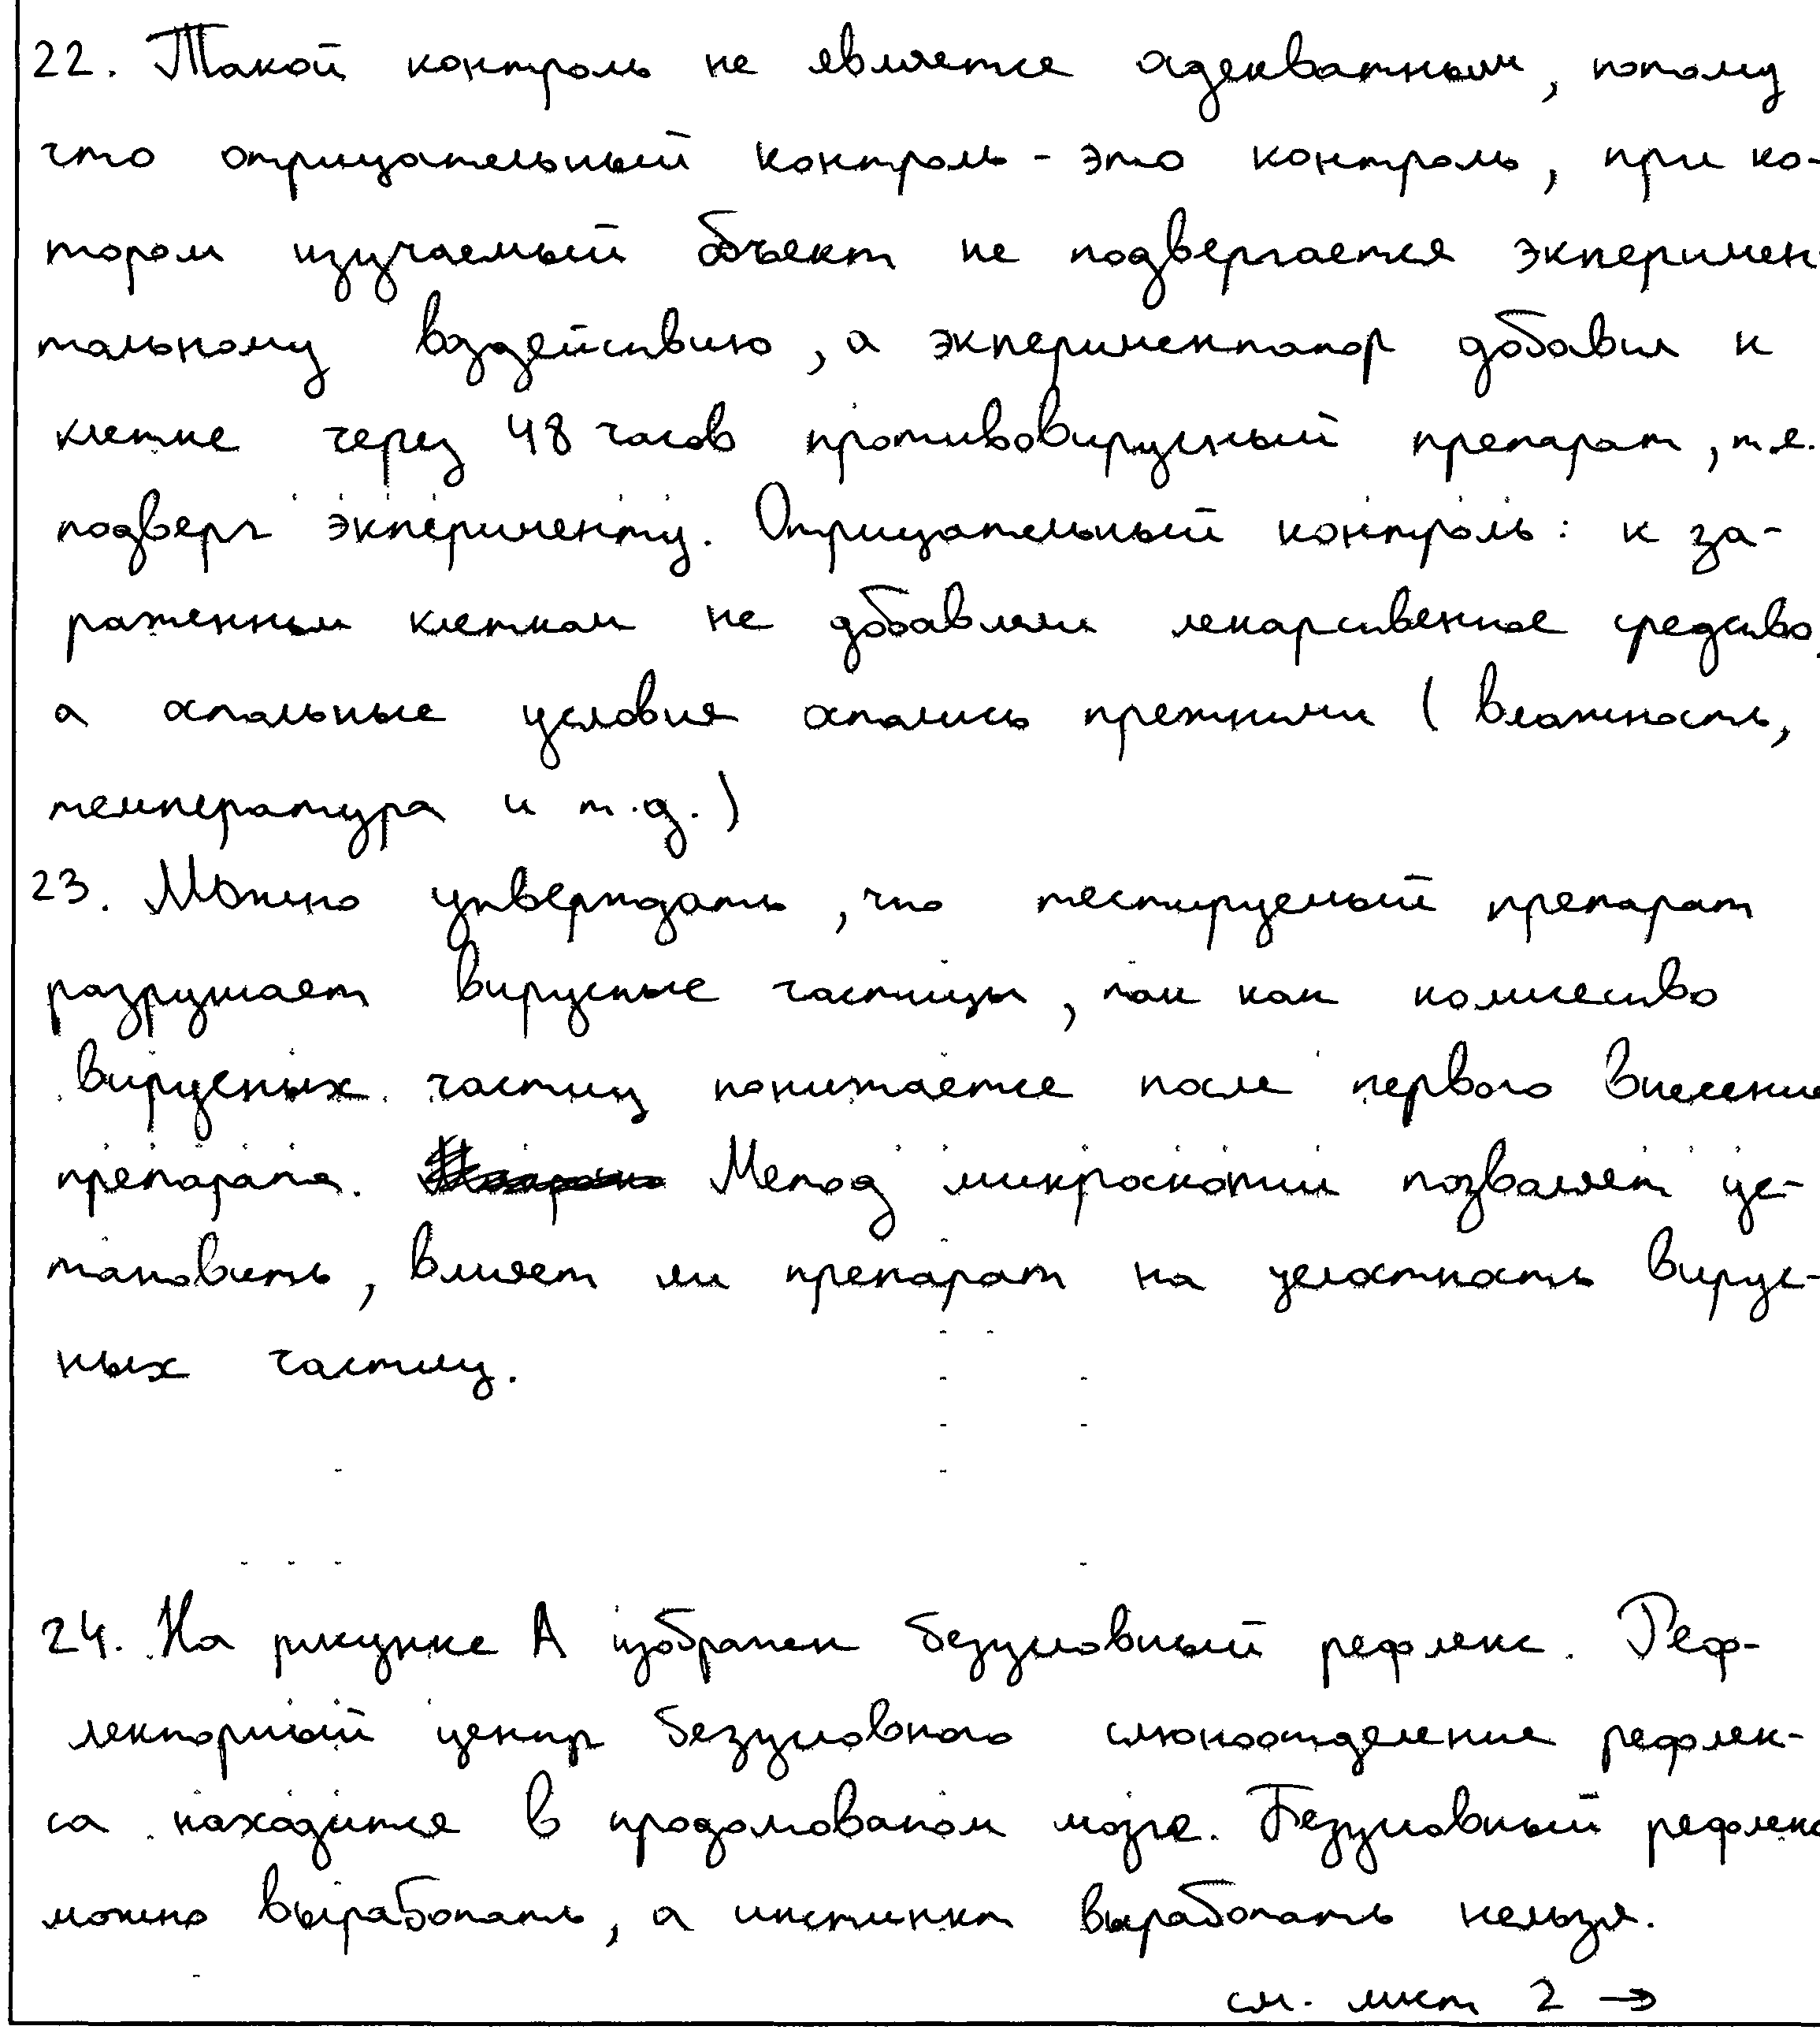 22. Такой контроль не является адекватным, потому
что отрицательный контроль - это контроль, при ко-
тором изучаемый объект не подвергается экперимен-
тальному воздействию, а экпериментатор добавил к
клетке через 48 часов противовирусный препарат, т.е.
подверг экперименту. Отрицательный контроль: к за-
раженным клеткам не добавляли лекарственное средство,
а остальные условия остались прежними (влажность,
температура и т.д.)
23. Можно утверждать, что тестируемый препарат
разрушает вирусные частицы, так как количество
вирусных частиц понижается после первого внесения
препарата. Метод микроскопии позволяет ус-
тановить, влияет ли препарат на целостность вирус-
ных частиц.
24. На рисунке А изображен безусловный рефлекс. Реф-
лекторный центр безусловного слюноотделения рефлек-
са находится в продолговатом мозге. Безусловный рефлекс
можно выработать, а инстинкт выработать нельзя.
см. лист 2 →